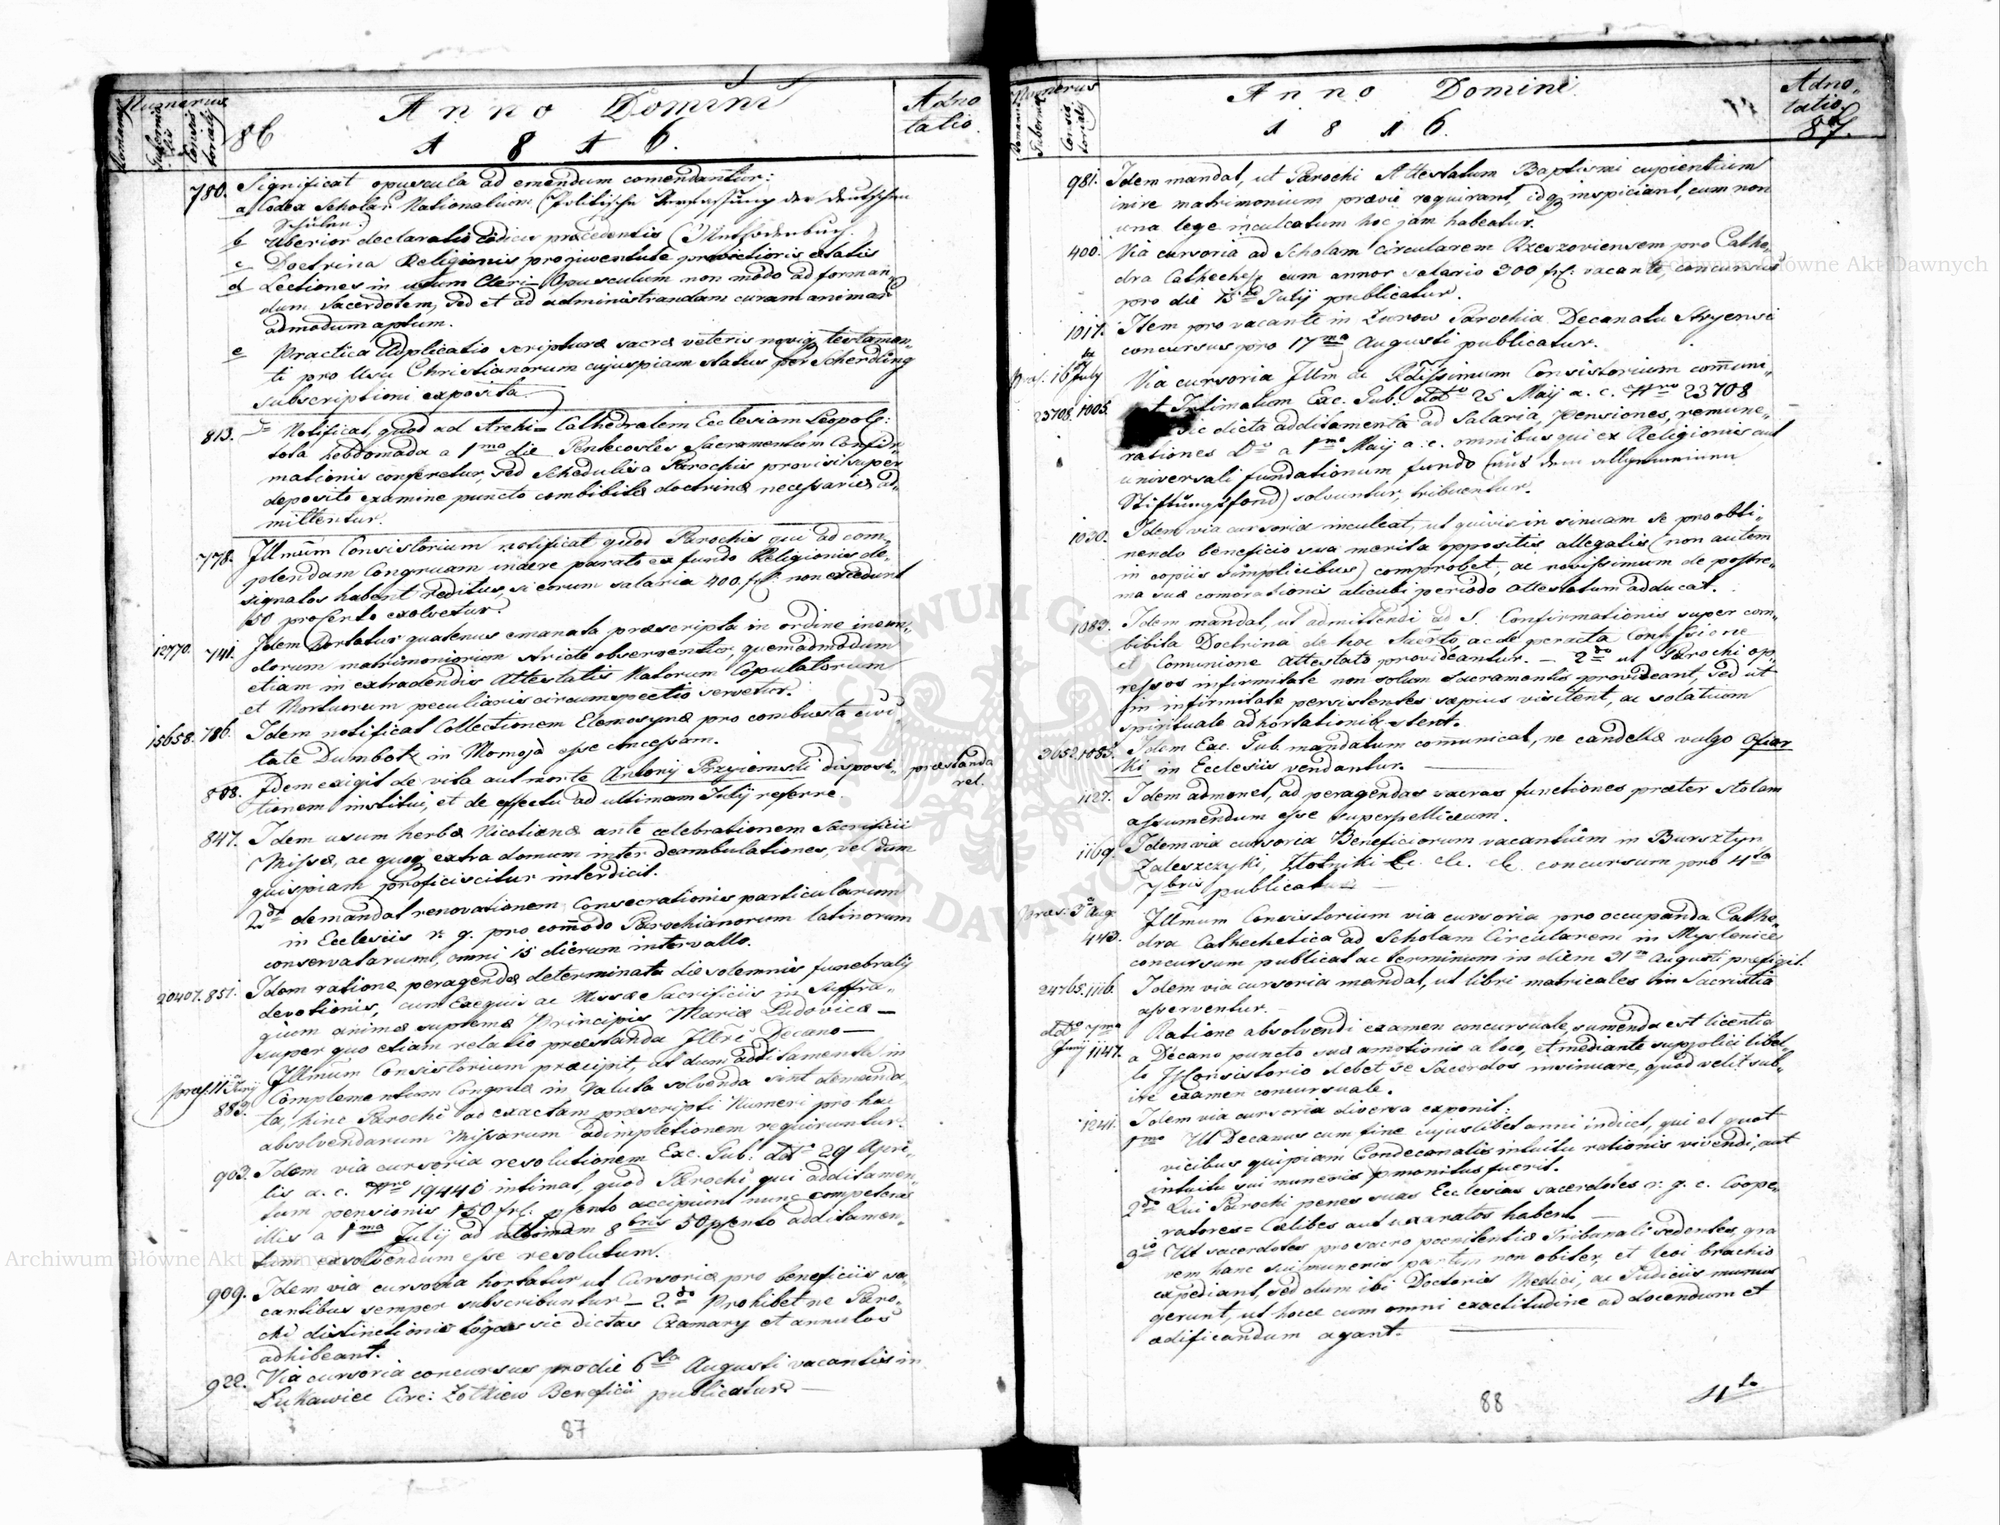 Numerus
Domini
Gubernialis
Consistorialis
86
Anno Domini
1816.
Adnotatio.
780. Significat opuscula ad emendum comendantur:
a Codex Scholar. Nationalium (Politische Verfassung der deutschen
Schulen.)
b Uberior declaratio codicis praecedentis (Methodenbuch.)
c Doctrina Religionis pro juventute provectioris aetatis
d Lectiones in usum Cleri – Opusculum non modo ad forman-
dum Sacerdotem, sed et ad administrandam curam animar.
admodum aptum.
e Practica Adplicatio scripturae sacrae veteris noviq testamen-
ti pro usu Christianorum cujuspiam status per Scherding
subscriptioni exposita.
813. Notificat, quod ad Archi-Cathedralem Ecclesiam Leopol:
tota hebdomada a 1ma die Pentecostes Sacramentum Confir-
mationis conferetur, sed Schedulis a Parochis provisi super
deposito examine puncto combibitae doctrinae necessariae ad-
mittentur.
778. Illmum Consistorium notificat quod Parochis qui ad com-
plendam Congruam indere parato ex fundo Religionis de-
signatos habent reditus, si eorum salaria 400 fr: non excedunt
50 procento exolvetur.
12770. 741. Idem hortatur quatenus emanata praescripta in ordine ineun-
dorum matrimoniorum stricte observentur, quemadmodum
etiam in extradendis Attestatis Natorum Copulatorum
et Mortuorum peculiaris circumspectio servetur.
15658. 786. Idem notificat Collectionem Elemosynae pro combusta civi-
tate Dumbok in Momoja esse concessam.
808. Idem exigit de vita aut morte Antonij Przyiemski disposi- praestanda
tionem institui, et de effectu ad ultimam Julij referre. rel.
847. Idem usum herbae Nicotianae ante celebrationem Sacrificii
Missae, ac quoq extra domum inter deambulationes, vel dum
quispiam proficiscitur interdicit.
2do demandat renovationem Consecrationis particularum
in Ecclesiis r. g. pro comodo Parochianorum latinorum
conservatarum, omni 15 dierum intervallo.
20407. 851. Idem ratione peragendae determinata die solemnis funebralis
devotionis, cum Exequiis ac Missae Sacrificiis in Suffra-
gium animae supremae Principis Mariae Ludovicae –
super quo etiam relatio praestanda Illri Decano –
praes. 11 Junij Illmum Consistorium praecipit, ut dum additamenta in
883. Complementum Congruae in Valuta solvenda sint demanda-
ta, hinc Parochi ad exactam praescripti Numeri pro hac
absolvendarum Missarum adimpletionem requiruntur.
903. Idem via cursoria resolutionem Exc. Gub: ddto 29 Apri-
lis a. c. Nro 19440 intimat, quod Parochi qui additamen-
tum pensionis 150 fr: pcento accipiunt nunc competens
illis a 1ma Julij ad ultimam 8bris 50 pcento additamen-
tum exsolvendum esse resolutum.
909. Idem via cursoria hortatur ut Cursoriae pro beneficiis va-
cantibus semper subscribuntur – 2do Prohibet ne Paro-
chi distinctionis togas sic dictas Czamary et annulos
adhibeant.
922. Via cursoria concursus pro die 6ta Augusti vacantis in
Lukawice Circ: Zolkiew Beneficii publicatur –
87
Numerus
Domini
Gubernii
Consistorialis
Anno Domini
1816.
Adnotatio.
87.
981. Idem mandat, ut Parochi Attestatum Baptismi cupientium
inire matrimonium praevie requirant, idq inspiciant, cum non
una lege inculcatum hoc jam habeatur.
400. Via cursoria ad Scholam circularem Rzeszoviensem pro Cathe-
dra Cathechesis cum annor salario 300 fr: vacante, concursus
pro die 15ta Julij publicatur.
1017. Item pro vacante in Zurow Parochia Decanatu Stryensi
concursus pro 17ma Augusti publicatur.
praes. 16ta July Via cursoria Illm ac Rdissimum Consistorium comuni-
23708. 1005. Intimatum Exc. Gub. ddto 25 Maij a. c. Nro 23708
sic dicta additamenta ad Salaria, pensiones, remune-
rationes Do a 1ma Maij a. c. omnibus qui ex Religionis aut
universali fundationum fundo (aus dem allgemeinen
Stiftungsfond) solvuntur, tribuentur.
1020. Idem via cursoria inculcat, ut quivis in sinuam se pro obti-
nendo beneficio sua merita oppositis allegatis (non autem
in copiis simplicibus) comprobet, ac novissimum de postre-
ma sua comorationis alicubi periodo attestatum adducat.
1082. Idem mandat, ut admittendi ad S. Confirmationis super com-
bibita Doctrina de hoc Sacrto, ac de peracta Confessione
et Comunione attestato provideantur. – 2do ut Parochi op-
ressos infirmitate non solum sacramentis provideant, sed ut
in infirmitate persistentes saepius visitent, ac solatium
spirituale adhortationib. stent.
2652. 1083. Idem Exc. Gub. mandatum comunicat, ne candellae vulgo Ofiar
ki in Ecclesiis vendantur.
1127. Idem admonet, ad peragendas sacras functiones praeter stolam
assumendum esse superpelliceum.
1169. Idem via cursoria Beneficiorum vacantium in Bursztyn
Zaleszczyki, Zlotniki &c. &c. &c. concursum pro 4ta
7bris publicat –
Praes. 3 Aug. Illmum Consistorium via cursoria pro occupanda Cathe-
443. dra Cathechetica ad Scholam Circularem in Myslenice
concursum publicat ac terminum in diem 31ma Augusti praefigit.
24765. 1116. Idem via cursoria mandat, ut libri matricales in Sacristia
asserventur. –
ddto 7ma Ratione absolvendi examen concursuale, sumenda est licentia
Junij 1147. a Decano puncto suae amotionis a loco, et mediante supplici libel-
lo Consistorio debet se Sacerdos insinuare, quod velit sub-
ire examen concursuale.
1241. Idem via cursoria diversa exponit:
1mo Ut Decanus cum fine cujuslibet anni indicet, qui et quot
vicibus quipiam Condecanalis intuitu rationis vivendi, aut
intuitu sui muneris pmonitus fuerit.
2do Qui Parochi penes suas Ecclesias sacerdotes r. g. c. Coope-
ratores – Caelibes aut uxaratos habent –
3tio Ut sacerdotes pro sacro poenitentiae Tribunali sedentes, gra
vem hanc sui muneris partem non obiter, et levi brachio
expediant, sed dum ibi Doctoris Medici, ac Judicis munus
gerunt, ut hocce cum omni exactitudine ad docendum et
aedificandum agant.
4to
88
Archiwum Główne Akt Dawnych
Archiwum Główne Akt Dawnych